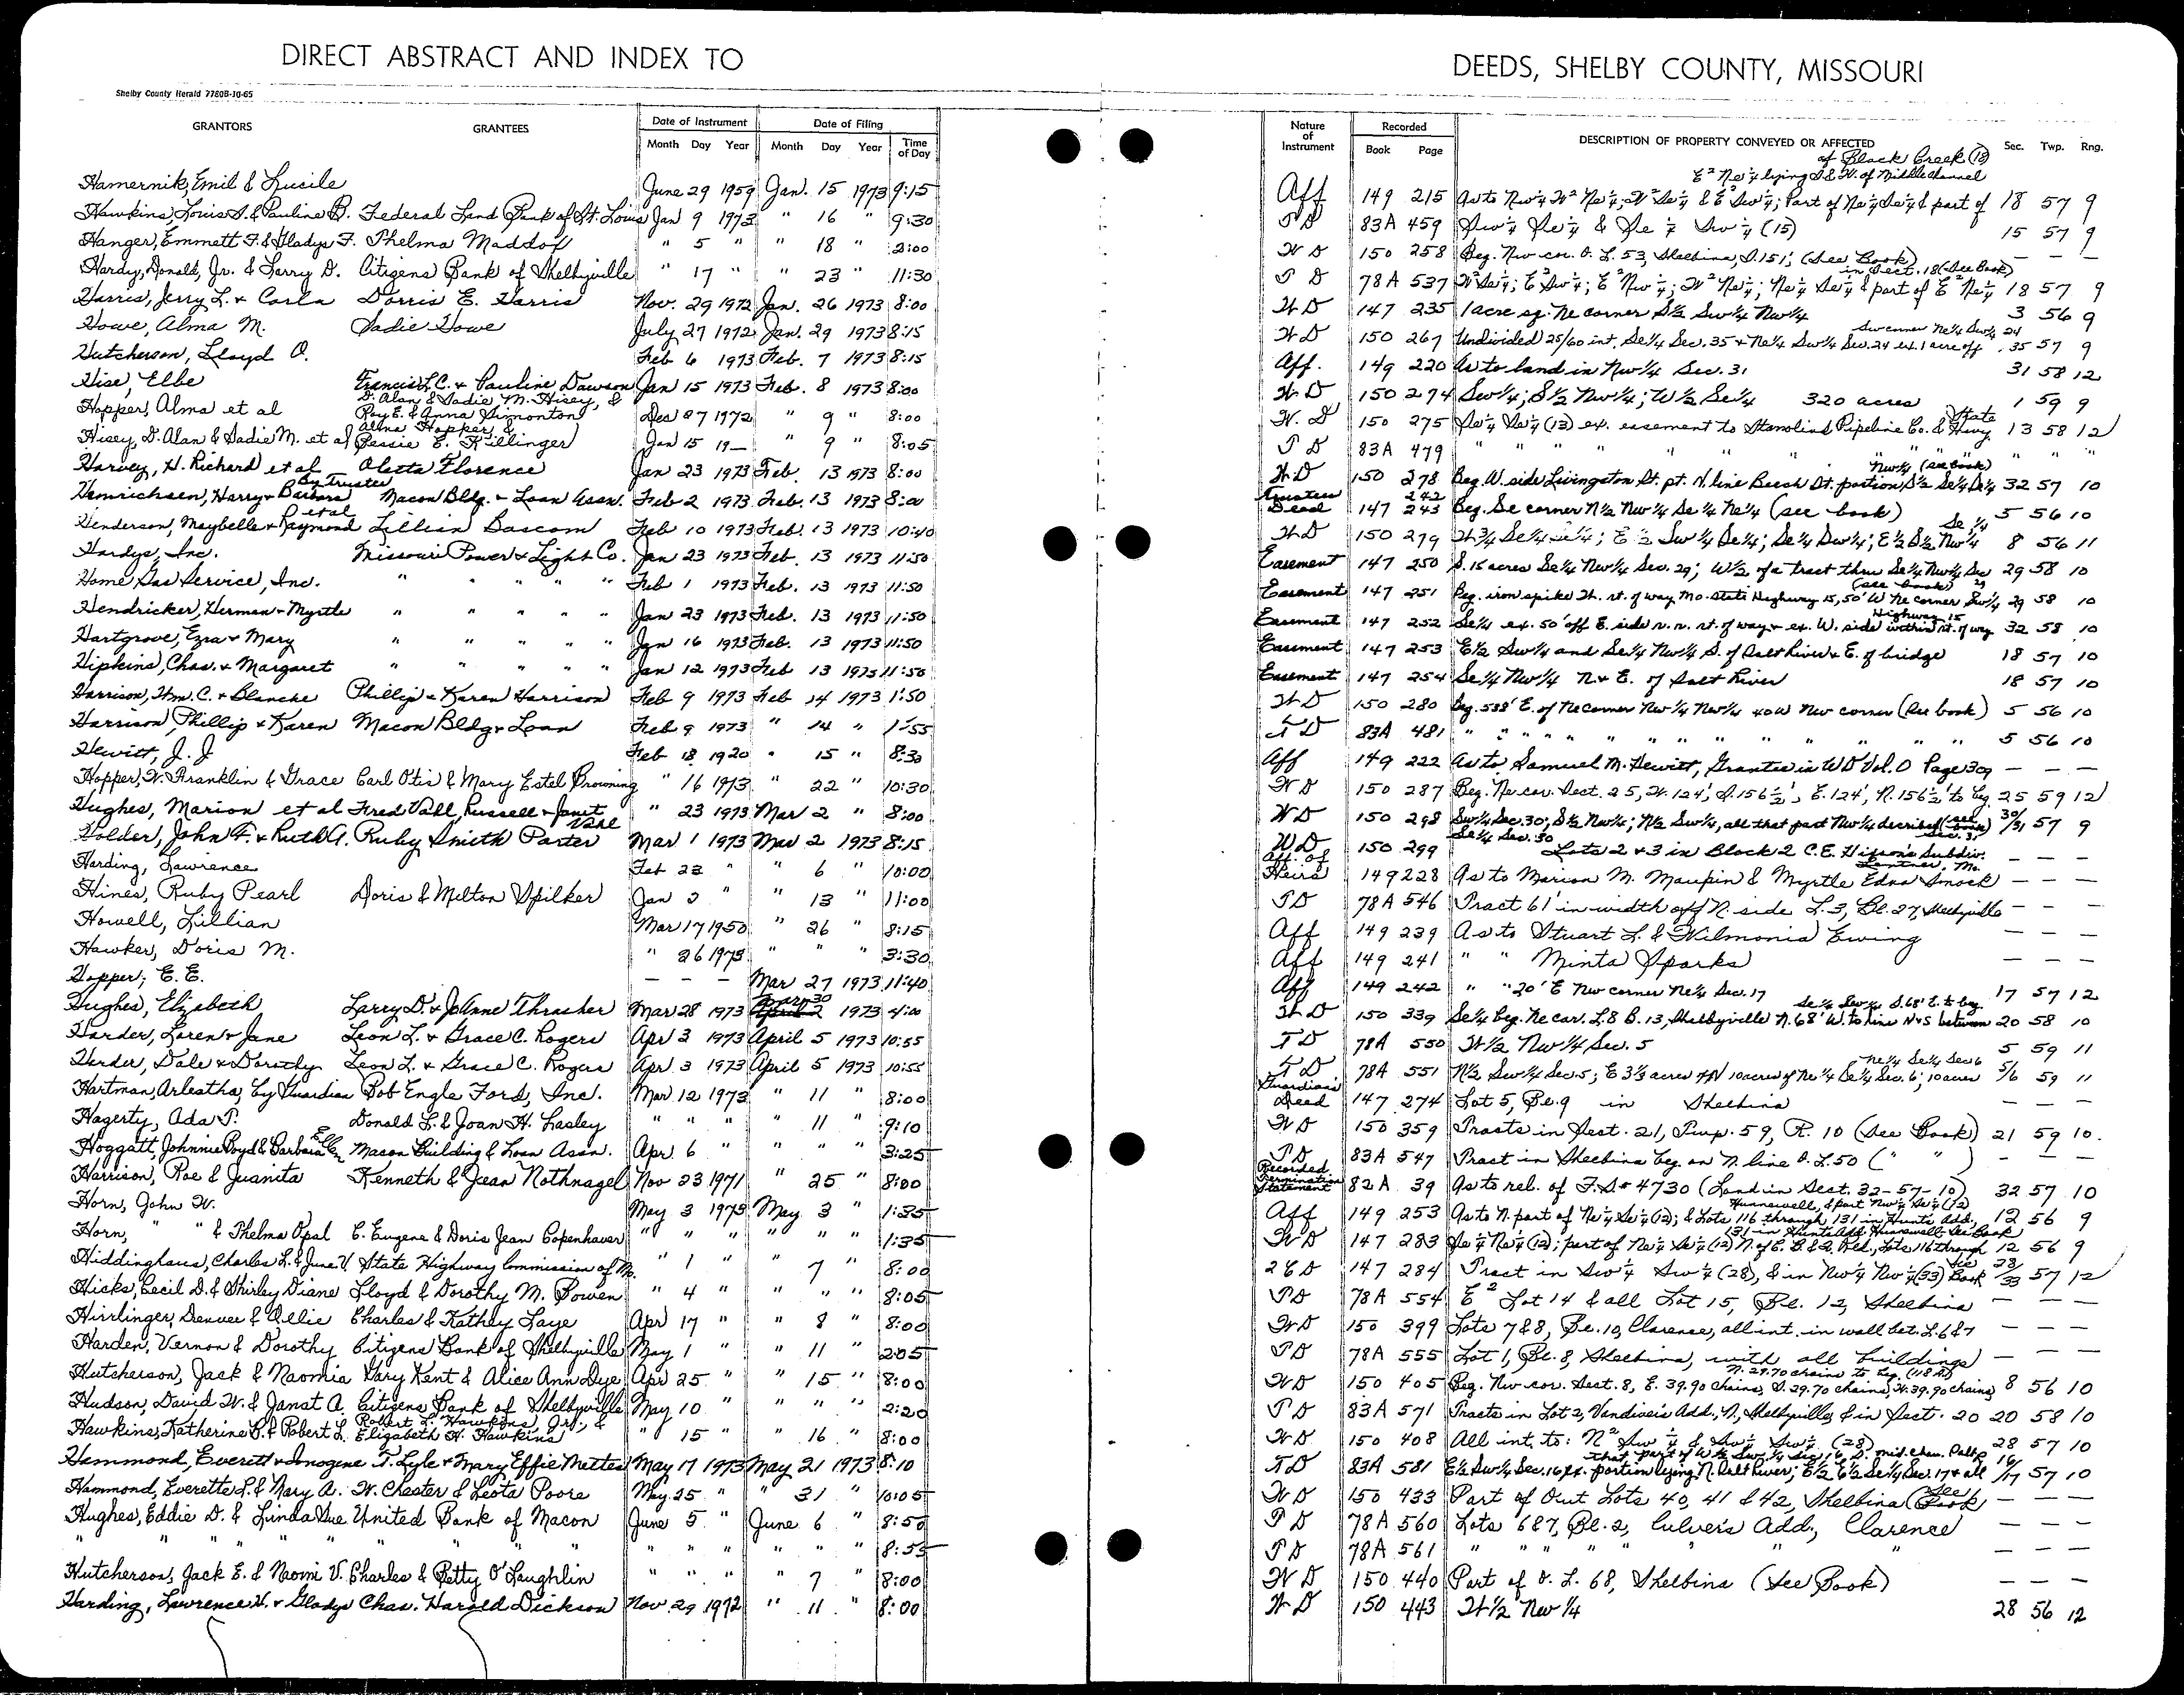 DIRECT ABSTRACT AND INDEX TO
DEEDS, SHELBY COUNTY, MISSOURI
Shelby County Herald 7780B-10-65
GRANTORS GRANTEES Date of Instrument Month Day Year Date of Filing Month Day Year Time of Day
Nature of Instrument Recorded Book Page DESCRIPTION OF PROPERTY CONVEYED OR AFFECTED Sec. Twp. Rng.
Hamernik, Emil & Lucile June 29 1959 Jan. 15 1973 9:15
Hawkins, Louis S. & Pauline B. Federal Land Bank of St. Louis Jan 9 1973 " 16 " 9:30
Hanger, Emmett F. & Gladys F. Thelma Maddox " 5 " " 18 " 2:00
Hardy, Donald, Jr. & Larry D. Citizens Bank of Shelbyville " 17 " " 23 " 11:30
Harris, Jerry L. & Carla Dorris E. Harris Nov. 29 1972 Jan. 26 1973 8:00
Howe, Alma M. Sadie Howe July 27 1972 Jan. 29 1973 8:15
Hutcherson, Lloyd O. Feb 6 1973 Feb. 7 1973 8:15
Hise, Elbe Francis L.C. & Pauline Dawson Jan 15 1973 Feb. 8 1973 8:00
Hopper, Alma et al D. Alan & Sadie M. Hisey, & Roy E. & Anna Simonton Dec 27 1972 " 9 " 8:00
Hisey, D. Alan & Sadie M. et al Alma Hopper & Bessie E. Killinger Jan 15 19— " 9 " 8:05
Harvey, H. Richard et al Aletta Florence Jan 23 1973 Feb. 13 1973 8:00
Henrichsen, Harry & Barbara By Trustee Macon Bldg. & Loan Assn. Feb 2 1973 Feb. 13 1973 8:00
Henderson, Maybelle & Raymond et al Lillian Bascom Feb 10 1973 Feb. 13 1973 10:40
Hardys, Inc. Missouri Power & Light Co. Jan 23 1973 Feb. 13 1973 11:50
Home Gas Service, Inc. " " " " " Feb 1 1973 Feb. 13 1973 11:50
Hendricker, Herman & Myrtle " " " " " Jan 23 1973 Feb. 13 1973 11:50
Hartgrove, Ezra & Mary " " " " " Jan 16 1973 Feb. 13 1973 11:50
Hipkins, Chas. & Margaret " " " " " Jan 12 1973 Feb 13 1973 11:50
Harrison, Wm. C. & Blanche Phillip & Karen Harrison Feb 9 1973 Feb 14 1973 1:50
Harrison, Phillip & Karen Macon Bldg & Loan Feb 9 1973 " 14 " 1:55
Hewitt, J. J Feb 18 1920 " 15 " 8:30
Hopper, W. Franklin & Grace Carl Otis & Mary Estel Browning " 16 1973 " 22 " 10:30
Hughes, Marion et al Fred Vahl, Russell & Janet Vahl " 23 1973 Mar 2 " 8:00
Holder, John F. & Ruth A. Ruby Smith Porter Mar 1 1973 Mar 2 1973 8:15
Harding, Lawrence Feb 22 " " 6 " 10:00
Hines, Ruby Pearl Doris & Milton Spilker Jan 2 " " 13 " 11:00
Howell, Lillian Mar 17 1950 " 26 " 8:15
Hawker, Doris M. " 26 1973 " " " 3:30
Hopper, E. E. — — — Mar 27 1973 11:40
Hughes, Elizabeth Larry D. & JoAnne Thrasher Mar 28 1973 Mar 30 April 2 1973 4:00
Harder, Loren & Jane Leon L. & Grace C. Rogers Apr 3 1973 April 5 1973 10:55
Herder, Dale & Dorothy Leon L. & Grace C. Rogers Apr. 3 1973 April 5 1973 10:55
Hartman, Arleatha, by Guardian Bob Engle Ford, Inc. Mar 12 1973 " 11 " 8:00
Hagerty, Ada T. Donald L. & Joan H. Lasley " " " " 11 " 9:10
Hoggatt, Johnnie Boyd & Barbara Ellen Macon Building & Loan Assn. Apr. 6 " " " " 3:25
Harrison, Roe & Juanita Kenneth & Jean Nothnagel Nov 23 1971 " 25 " 8:00
Horn, John W. May 3 1973 May 3 " 1:35
Horn, " " & Thelma Opal C. Eugene & Doris Jean Copenhaver " " " " " " 1:35
Hiddinghaus, Charles L. & June V. State Highway Commission of Mo. " 1 " " 7 " 8:00
Hicks, Cecil D. & Shirley Diane Lloyd & Dorothy M. Bowen " 4 " " " " 8:05
Hirrlinger, Denver & Ollie Charles & Kathey Laye Apr 17 " " 8 " 8:00
Harden, Vernon & Dorothy Citizens Bank of Shelbyville May 1 " " 11 " 2:05
Hutcherson, Jack & Naomia Gary Kent & Alice Ann Dye Apr 25 " " 15 " 8:00
Hudson, David W. & Janet A. Citizens Bank of Shelbyville May 10 " " " " 2:20
Hawkins, Katherine B. & Robert L. Robert L. Hawkins, Jr., & Elizabeth H. Hawkins " 15 " " 16 " 8:00
Hammond, Everett & Imogene T. Lyle & Mary Effie Mettes May 17 1973 May 21 1973 8:10
Hammond, Everette L. & Mary A. W. Chester & Leota Poore May 25 " " 31 " 10:05
Hughes, Eddie D. & Linda Sue United Bank of Macon June 5 " June 6 " 8:50
" " " " " " " " " " " " " " 8:55
Hutcherson, Jack E. & Naomi V. Charles & Betty O'Laughlin " " " " 7 " 8:00
Harding, Lawrence H. & Gladys Chas. Harold Dickson Nov. 29 1972 " 11 " 8:00
of Black Creek (18)
E² Ne¼ lying S & W. of Middle Channel
Aff 149 215 As to Nw¼ W² Ne¼; W² Se¼ & E² Sw¼; Part of Ne¼ Se¼ & part of 18 57 9
TD 83A 459 Sw¼ Se¼ & Se ¼ Sw ¼ (15) 15 57 9
WD 150 258 Beg. Nw cor. O. L. 53, Shelbina, S 151', (See Book) — — —
in Sect. 18 (See Book)
TD 78A 537 W² Se¼; E² Sw¼; E² Nw¼; W² Ne¼; Ne¼ Se¼ & part of E² Ne¼ 18 57 9
WD 147 235 1 acre sq. Ne corner S½ Sw¼ Nw¼ 3 56 9
Sw corner Ne¼ Sw¼ 24
WD 150 267 Undivided 25/60 int, Se¼ Sec. 35 & Ne¼ Sw¼ Sec. 24 ex. 1 acre off 35 57 9
Aff. 149 220 As to land in Nw¼ Sec. 31 31 58 12
WD 150 274 Sw¼; S½ Nw¼; W½ Se¼ 320 acres 1 59 9
W. D 150 275 Se¼ Se¼ (13) ex. easement to Stanolind Pipeline Co. & State Hwy 13 58 12
TD 83A 479 " " " " " " " " "
Nw¼ (see book)
WD 150 278 Beg. W. side Livingston St. pt. N. line Beech St. portion S½ Se¼ Se¼ 32 57 10
Trustees Deed 147 242 243 Beg. Se corner N½ Nw¼ Se¼ Ne¼ (see book) 5 56 10
Se ¼
WD 150 279 W¾ Se¼ Se¼; E½ Sw¼ Se¼; Se¼ Sw¼; E½ S½ Nw¼ 8 56 11
Easement 147 250 S. 15 acres Se¼ Nw¼ Sec. 29; W½ of a tract thru Se¼ Nw¼ Sec 29 29 58 10
(see book)
Easement 147 251 Beg. iron spike W. rt. of way Mo. State Highway 15, 50' W Ne corner Sw¼ 29 58 10
Highway 15
Easement 147 252 Se¼ ex. 50' off E. side r. r. rt. of way & ex. W. side within rt. of way 32 58 10
Easement 147 253 E½ Sw¼ and Se¼ Nw¼ S. of Salt River & E. of bridge 18 57 10
Easement 147 254 Se¼ Nw¼ N & E. of Salt River 18 57 10
WD 150 280 Beg. 538' E. of Ne corner Nw¼ Nw¼ 40W Nw corner (See book) 5 56 10
TD 83A 481 " " " " " " " " " " " " 5 56 10
Aff 149 222 As to Samuel M. Hewitt, Grantee in WD Vol. O Page 309 — — —
WD 150 287 Beg. Ne cor. Sect. 25, W. 124', S. 156½', E. 124', N. 156½' to beg. 25 59 12
WD 150 298 Sw¼ Sec. 30; S½ Nw¼; N½ Sw¼, all that part Nw¼ described (see book) Sec. 31 30/31 57 9
Se¼ Sec. 30
WD 150 299 Lots 2 & 3 in Block 2 C.E. Hixson's Subdiv. Lentner, Mo. — — —
Aff. of Heirs 149 228 As to Marion M. Maupin & Myrtle Edna Smock — — —
TD 78A 546 Tract 61' in width off N. side L. 3, Bl. 27, Shelbyville — — —
Aff 149 239 As to Stuart L. & Wilmonia Ewing — — —
Aff 149 241 " " Minta Sparks — — —
Aff 149 242 " " 20' E Nw corner Ne¼ Sec. 17 17 57 12
Se¼ Sw¼ S. 68' E. to beg
WD 150 339 Se¼ beg. Ne cor. L. 8 B. 13, Shelbyville N. 68' W. to line N & S between 20 58 10
TD 78A 550 W½ Nw¼ Sec. 5 5 59 11
Ne¼ Se¼ Sec 6
TD 78A 551 N½ Sw¼ Sec. 5; E 3⅓ acres of N 10 acres of Ne¼ Se¼ Sec. 6; 10 acres 5/6 59 11
Guardian's Deed 147 274 Lot 5, Bl. 9 in Shelbina — — —
WD 150 359 Tracts in Sect. 21, Twp. 59, R. 10 (See Book) 21 59 10.
TD 83A 547 Tract in Shelbina beg. on N. line O. L. 50 ( " " ) — — —
Recorded Termination Statement 82A 39 As to rel. of F.S # 4730 (Land in Sect. 32-57-10) 32 57 10
Hunnewell, & part Nw¼ Se¼ (12)
Aff 149 253 As to N. part of Ne¼ Se¼ (12); & Lots 116 through 131 in Hunts Add, 12 56 9
131 in Hunts Add. Hunnewell See Book
WD 147 283 Se¼ Ne¼ (12); part of Ne¼ Se¼ (12) N. of C. B. & Q. Rd., Lots 116 through 12 56 9
2CD 147 284 Tract in Sw¼ Sw¼ (28), & in Nw¼ Nw¼ (33) See Book 28/33 57 12
TD 78A 554 E² Lot 14 & all Lot 15, Bl. 12, Shelbina — — —
WD 150 399 Lots 7 & 8, Bl. 10, Clarence, all int. in wall bet. L. 6 & 7 — — —
TD 78A 555 Lot 1, Bl. 8, Shelbina, with all buildings — — —
N. 29.70 chains to beg. (118 A)
WD 150 405 Beg. Nw cor. Sect. 8, E. 39.90 chains, S. 29.70 chains, W. 39.90 chains 8 56 10
TD 83A 571 Tracts in Lot 2, Vandiver's Add., N, Shelbyville, & in Sect. 20 20 58 10
WD 150 408 All int. to: N² Sw¼ & Sw¼ Sw¼ (28) 28 57 10
that part of W½ Sw¼ Sec. 16, S. mid. chan. Salt R
TD 83A 581 E½ Sw¼ Sec. 16 ex. portion lying N. Salt River; E½ E½ Se¼ Sec. 17 & all 16/17 57 10
WD 150 433 Part of Out Lots 40, 41 & 42, Shelbina (See Book) — — —
TD 78A 560 Lots 6&7, Bl. 2, Culver's Add., Clarence — — —
TD 78A 561 " " " " " " " — — —
WD 150 440 Part of O. L. 68, Shelbina (See Book) — — —
WD 150 443 W½ Nw¼ 28 56 12